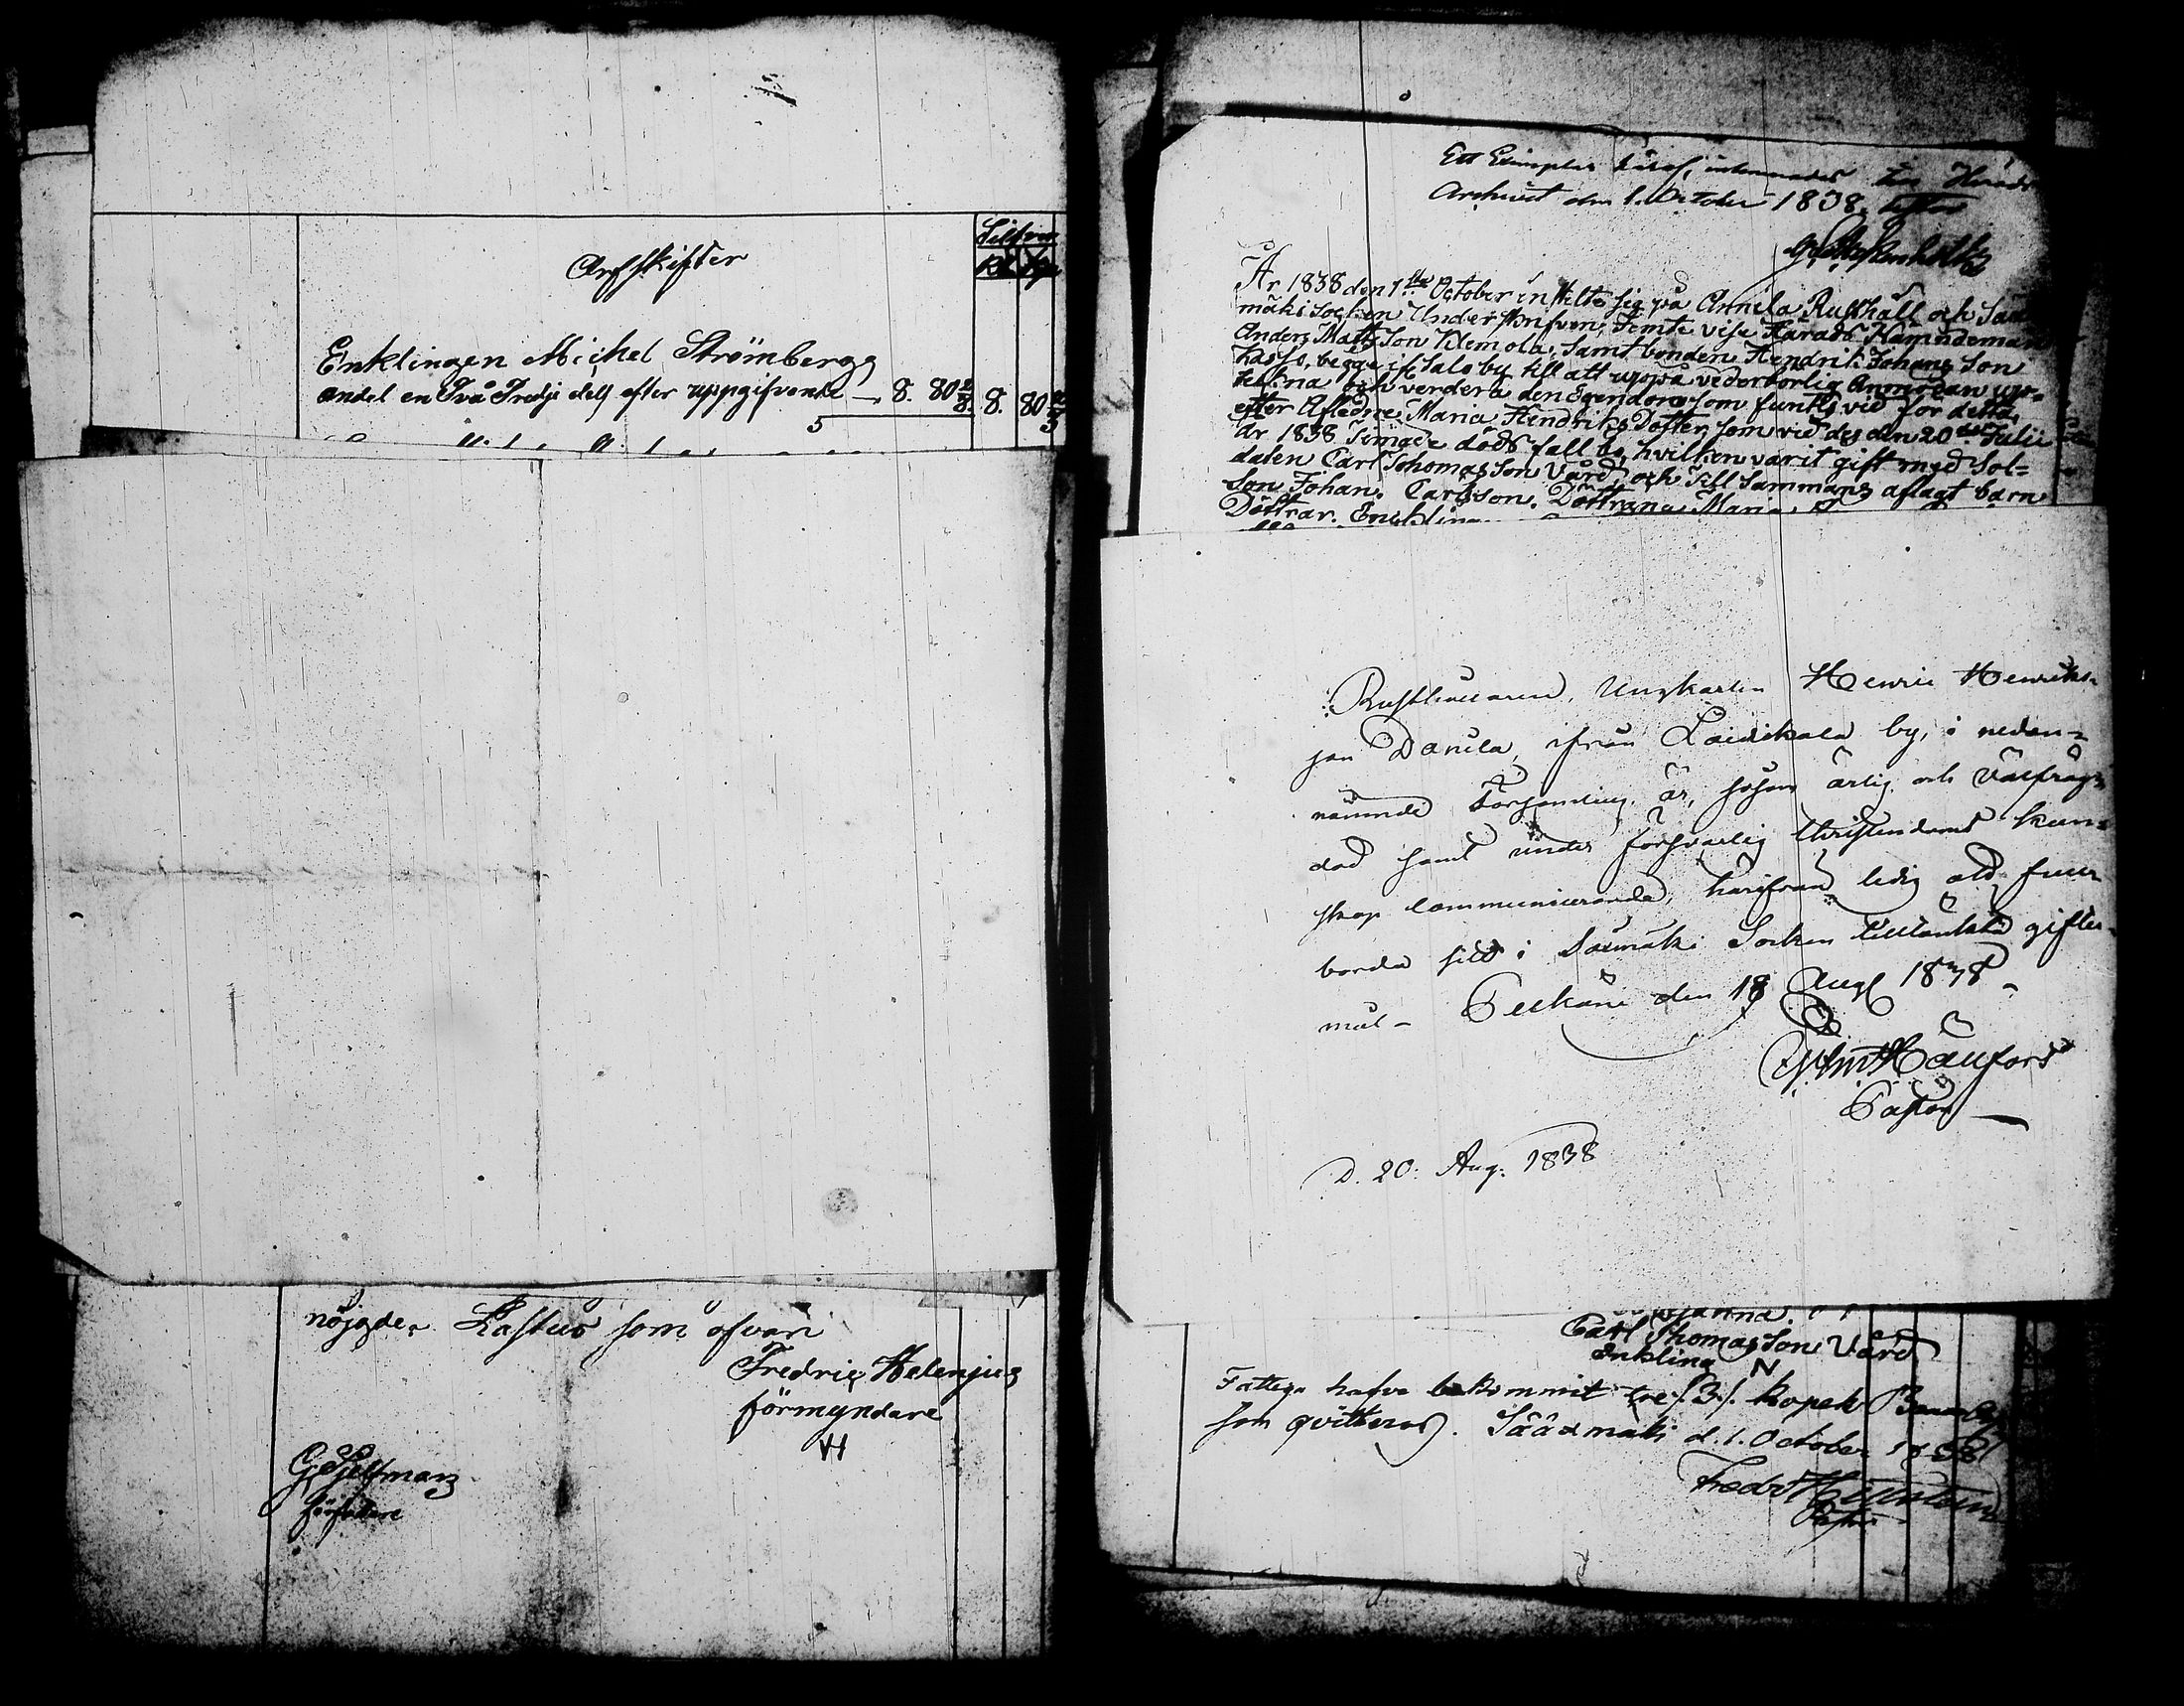 Silfver
Rbl Kop
Arfskifter
Enklingen Michel Strömbergs
andel en Två Tredje dels efter uppgifvande — 8. 80 2/8. 8. 80
5
nöjgde. Kastus som ofvan
Fredric Helenjus
förmyndare
G. Hellman
författare
Ett Exemplar häraf, inlemnades till Härads
Archivet den 1. October 1838.
År 1838 den 1ste October instälte sig på Annila Rusthåll och Sää=
mäki Socken Underskrifven Femte vise Härads Nämndeman
Anders Matts Son Klemola, Samt bonden Hendrik Johans Son
Hasso, begge if Salo by till att uppå vederbörlig Anmodan upp=
tekna och verdera den Egendom som funits vid för detta
efter Afledne Maria Hendriks Dotter, som vid des den 20de Julii
år 1838 Timade döds fall bo, hvilken varit gift med Sol=
daten Carl Thomas Son Vård, och Till Sammans aflagt barn
Son Johan. Carlsson. Döttrarna Maria
Döttrar. Enklingen
Rusthållaren, Ungkarlen Henric Henriks-
son Danila, ifrån Laidikala by, i nedan=
nämnde Församling, är, såsom ärlig och Välfräg=
dad samt under försvarlig Christendoms kun=
skap communicerande, härifrån ledig att fuer-
borda sitt i Säxmäki Socken tilltänkta gifter-
mål - Pelkäne den 18 Aug 1838
Wm Häufors
Pastor
D. 20. Aug. 1838
Carl Thomas Son Vård
Enkling
Fattiga hafva bekommit tre /.3/. kopek Banco
som qvitteras. Sääxmäki d. 1. October 1838
Fredr Hellström
Pastor